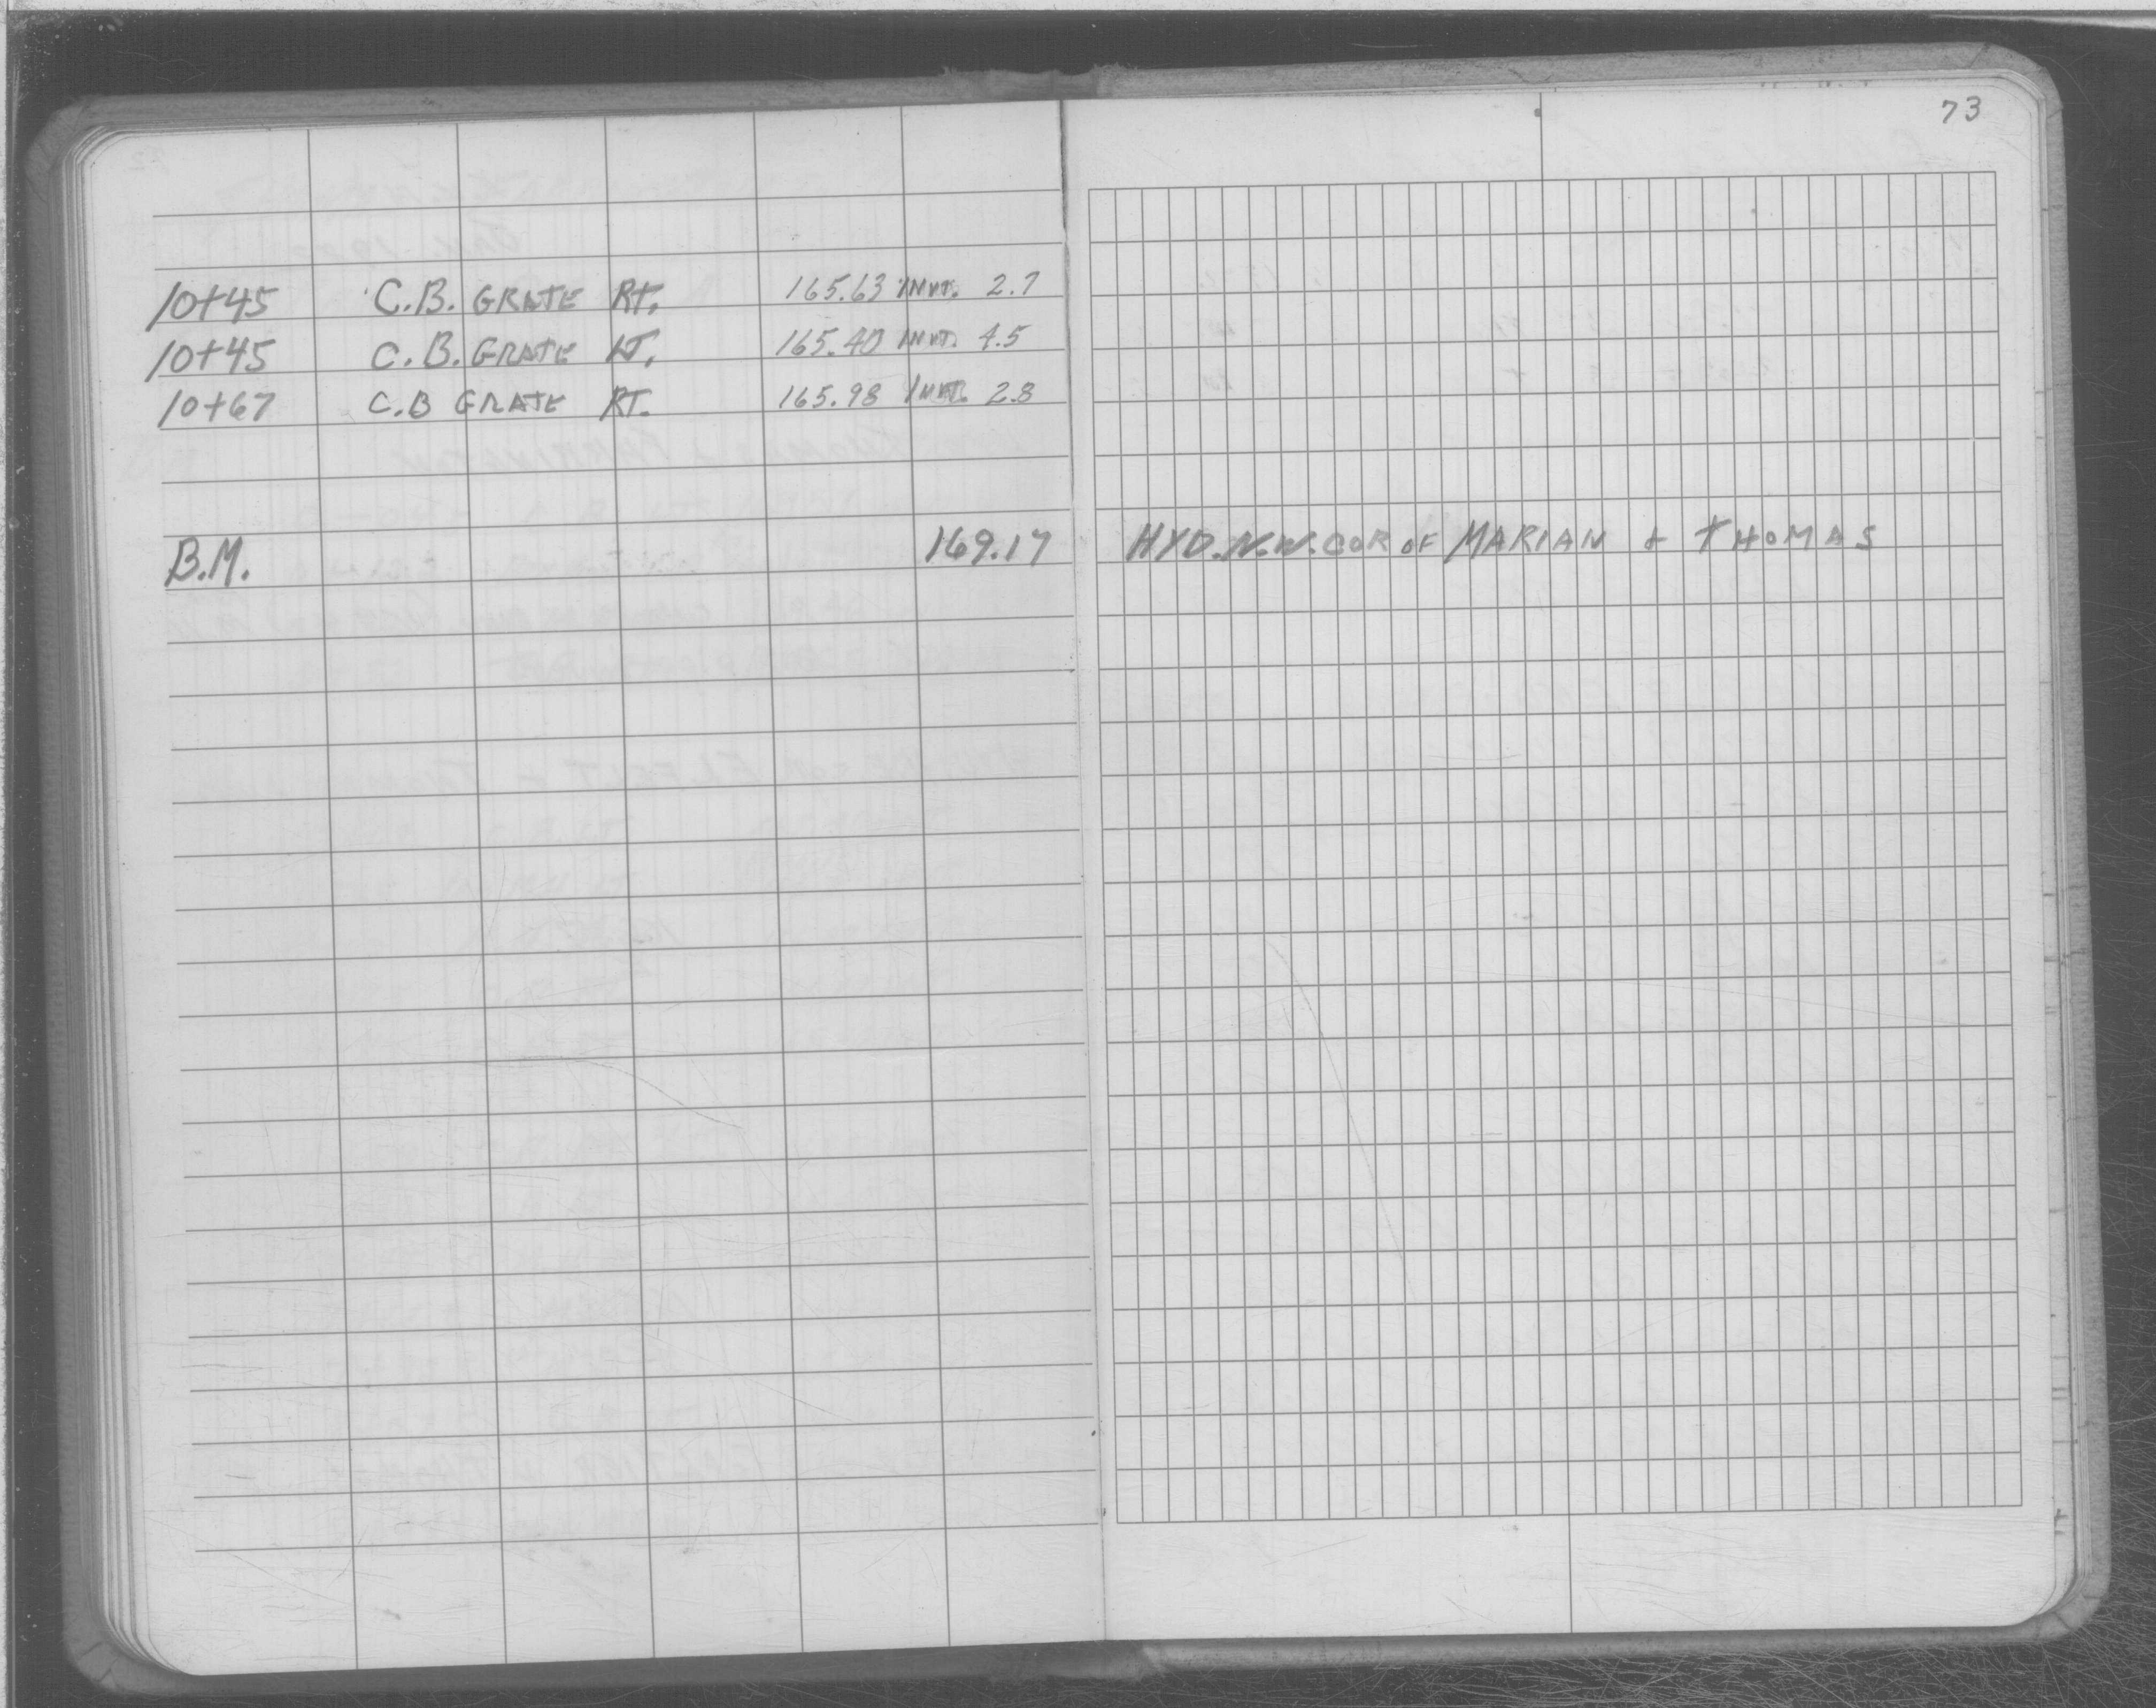 73
10+45 C.B. GRATE RT. 165.63 INVT. 2.7
10+45 C.B. GRATE LT. 165.40 INVT. 4.5
10+67 C.B GRATE RT. 165.98 INVT. 2.8
B.M. 169.17 HYD. N.W. COR OF MARIAN & THOMAS